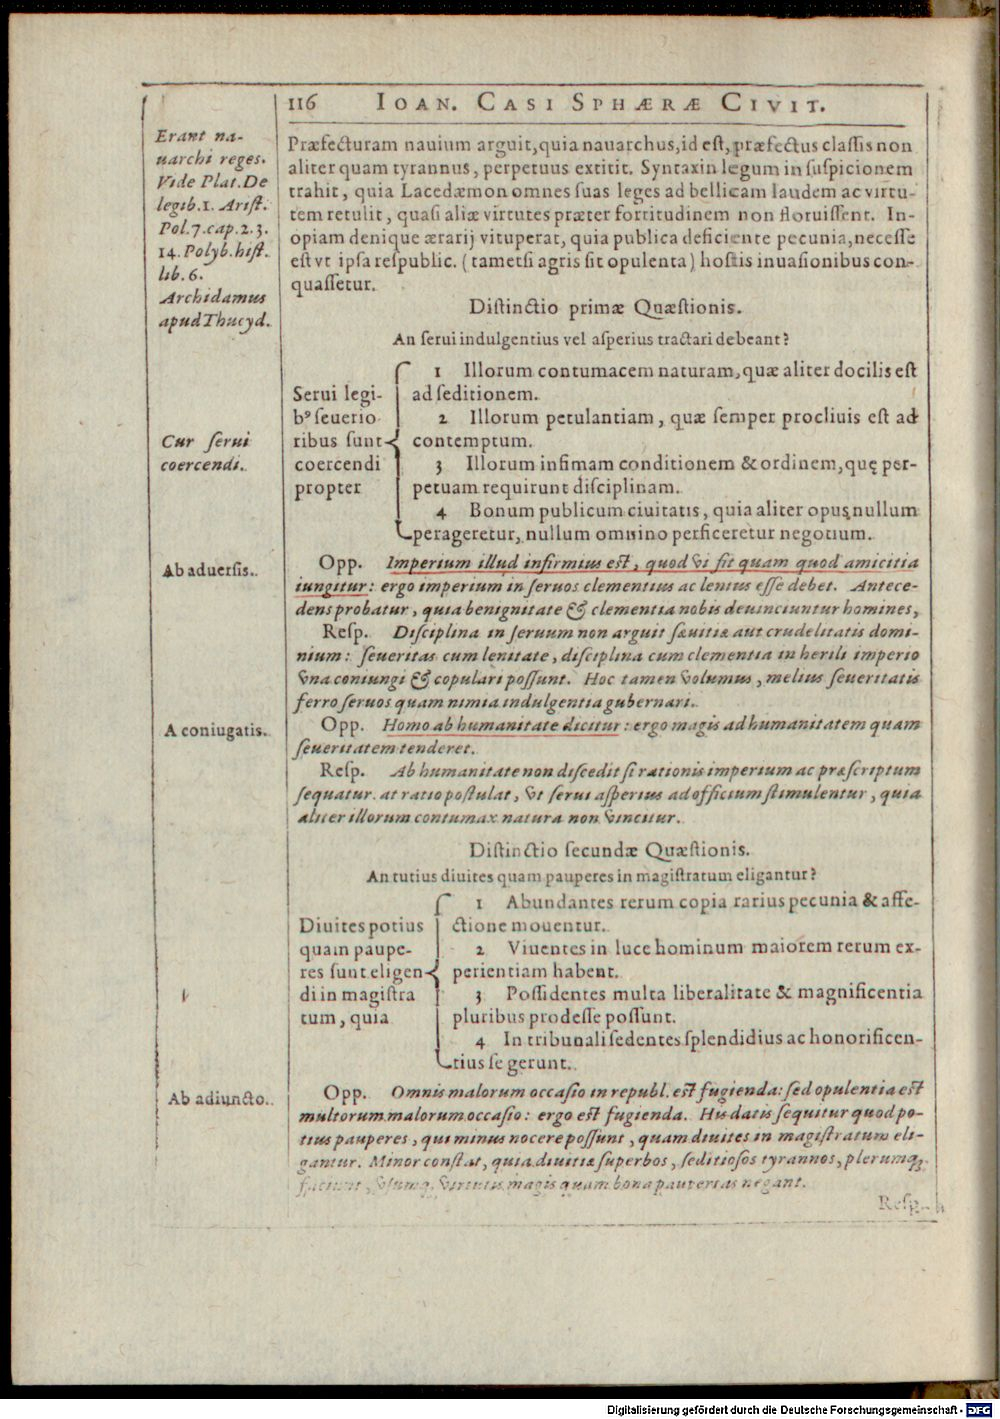 116 IOAN. CASI SPHÆRÆ CIVIT.
Erant na-
uarchi reges.
Vide Plat. De
legib. 1. Arist.
Pol. 7. cap. 2. 3.
14. Polyb. hist.
lib. 6.
Archidamus
apud Thucyd.
Præfecturam nauium arguit, quia nauarchus, id est, præfectus classis non
aliter quam tyrannus, perpetuus extitit. Syntaxin legum in suspicionem
trahit, quia Lacedæmon omnes suas leges ad bellicam laudem ac virtu-
tem retulit, quasi aliæ virtutes præter fortitudinem non floruissent. In-
opiam denique ærarij vituperat, quia publica deficiente pecunia, necesse
est vt ipsa respublic. (tametsi agris sit opulenta) hostis inuasionibus con-
quassetur.
Distinctio primæ Quæstionis.
An serui indulgentius vel asperius tractari debeant?
Cur serui
coercendi.
Serui legi-
bꝰ seuerio
ribus sunt
coercendi
propter
1 Illorum contumacem naturam, quæ aliter docilis est
ad seditionem.
2 Illorum petulantiam, quæ semper procliuis est ad
contemptum.
3 Illorum infimam conditionem & ordinem, quę per-
petuam requirunt disciplinam.
4 Bonum publicum ciuitatis, quia aliter opus nullum
perageretur, nullum omnino perficeretur negotium.
Ab aduersis.
Opp. Imperium illud infirmius est, quod vi fit quam quod amicitia
iungitur: ergo imperium in seruos clementius ac lenius esse debet. Antece-
dens probatur, quia benignitate & clementia nobis deuinciuntur homines,
Resp. Disciplina in seruum non arguit sæuitiæ aut crudelitatis domi-
nium: seueritas cum lenitate, disciplina cum clementia in herili imperio
vna coniungi & copulari possunt. Hoc tamen volumus, melius seueritatis
ferro seruos quam nimia indulgentia gubernari.
A coniugatis.
Opp. Homo ab humanitate dicitur: ergo magis ad humanitatem quam
seueritatem tenderet.
Resp. Ab humanitate non discedit si rationis imperium ac præscriptum
sequatur. at ratio postulat, vt serui asperius ad officium stimulentur, quia
aliter illorum contumax natura non vincitur.
Distinctio secundæ Quæstionis.
An tutius diuites quam pauperes in magistratum eligantur?
Diuites potius
quam paupe-
res sunt eligen
di in magistra
tum, quia
1 Abundantes rerum copia rarius pecunia & affe-
ctione mouentur.
2 Viuentes in luce hominum maiorem rerum ex-
perientiam habent.
3 Possidentes multa liberalitate & magnificentia
pluribus prodesse possunt.
4 In tribunali sedentes splendidius ac honorificen-
tius se gerunt.
Ab adiuncto.
Opp. Omnis malorum occasio in republ. est fugienda: sed opulentia est
multorum malorum occasio: ergo est fugienda. His datis sequitur quod po-
tius pauperes, qui minus nocere possunt, quam diuites in magistratum eli-
gantur. Minor constat, quia diuitiæ superbos, seditiosos tyrannos, plerumq;
faciunt, vsumq; virtutis magis quam bona paupertas negant.
Resp.
Digitalisierung gefördert durch die Deutsche Forschungsgemeinschaft - DFG